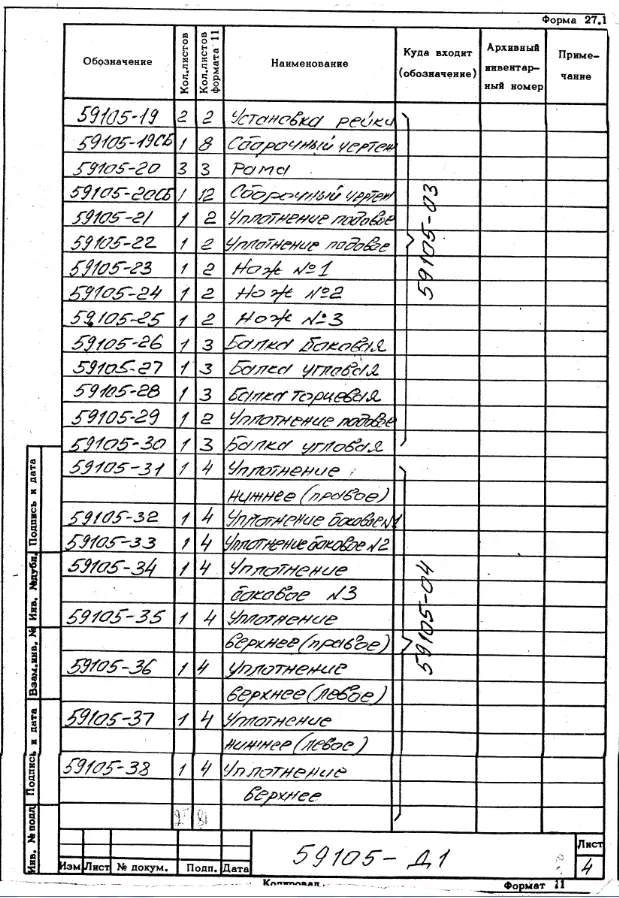 Форма 27.1
Обозначение Кол.листов Кол.листов формата 11 Наименование Куда входит (обозначение) Архивный инвентар-ный номер Приме-чание
59105-19 2 2 Установка рейки
59105-19СБ 1 8 Сборочный чертеж
59105-20 3 3 Рама
59105-20СБ 1 12 Сборочный чертеж
59105-21 1 2 Уплотнение подовое
59105-22 1 2 Уплотнение подовое
59105-23 1 2 Нож №1
59105-24 1 2 Нож №2
59105-25 1 2 Нож №3
59105-26 1 3 Балка боковая
59105-27 1 3 Балка угловая
59105-28 1 3 Балка торцевая
59105-29 1 2 Уплотнение подовое
59105-30 1 3 Балка угловая
59105-03
59105-31 1 4 Уплотнение
нижнее (правое)
59105-32 1 4 Уплотнение боковое №1
59105-33 1 4 Уплотнение боковое №2
59105-34 1 4 Уплотнение
боковое №3
59105-35 1 4 Уплотнение
верхнее (правое)
59105-36 1 4 Уплотнение
верхнее (левое)
59105-37 1 4 Уплотнение
нижнее (левое)
59105-38 1 4 Уплотнение
верхнее
59105-04
Подпись и дата
Инв. № дубл.
Взам.инв. №
Подпись и дата
Инв. № подл
Изм Лист № докум. Подп. Дата
59105-Д1
Лист
4
Копировал.
Формат 11